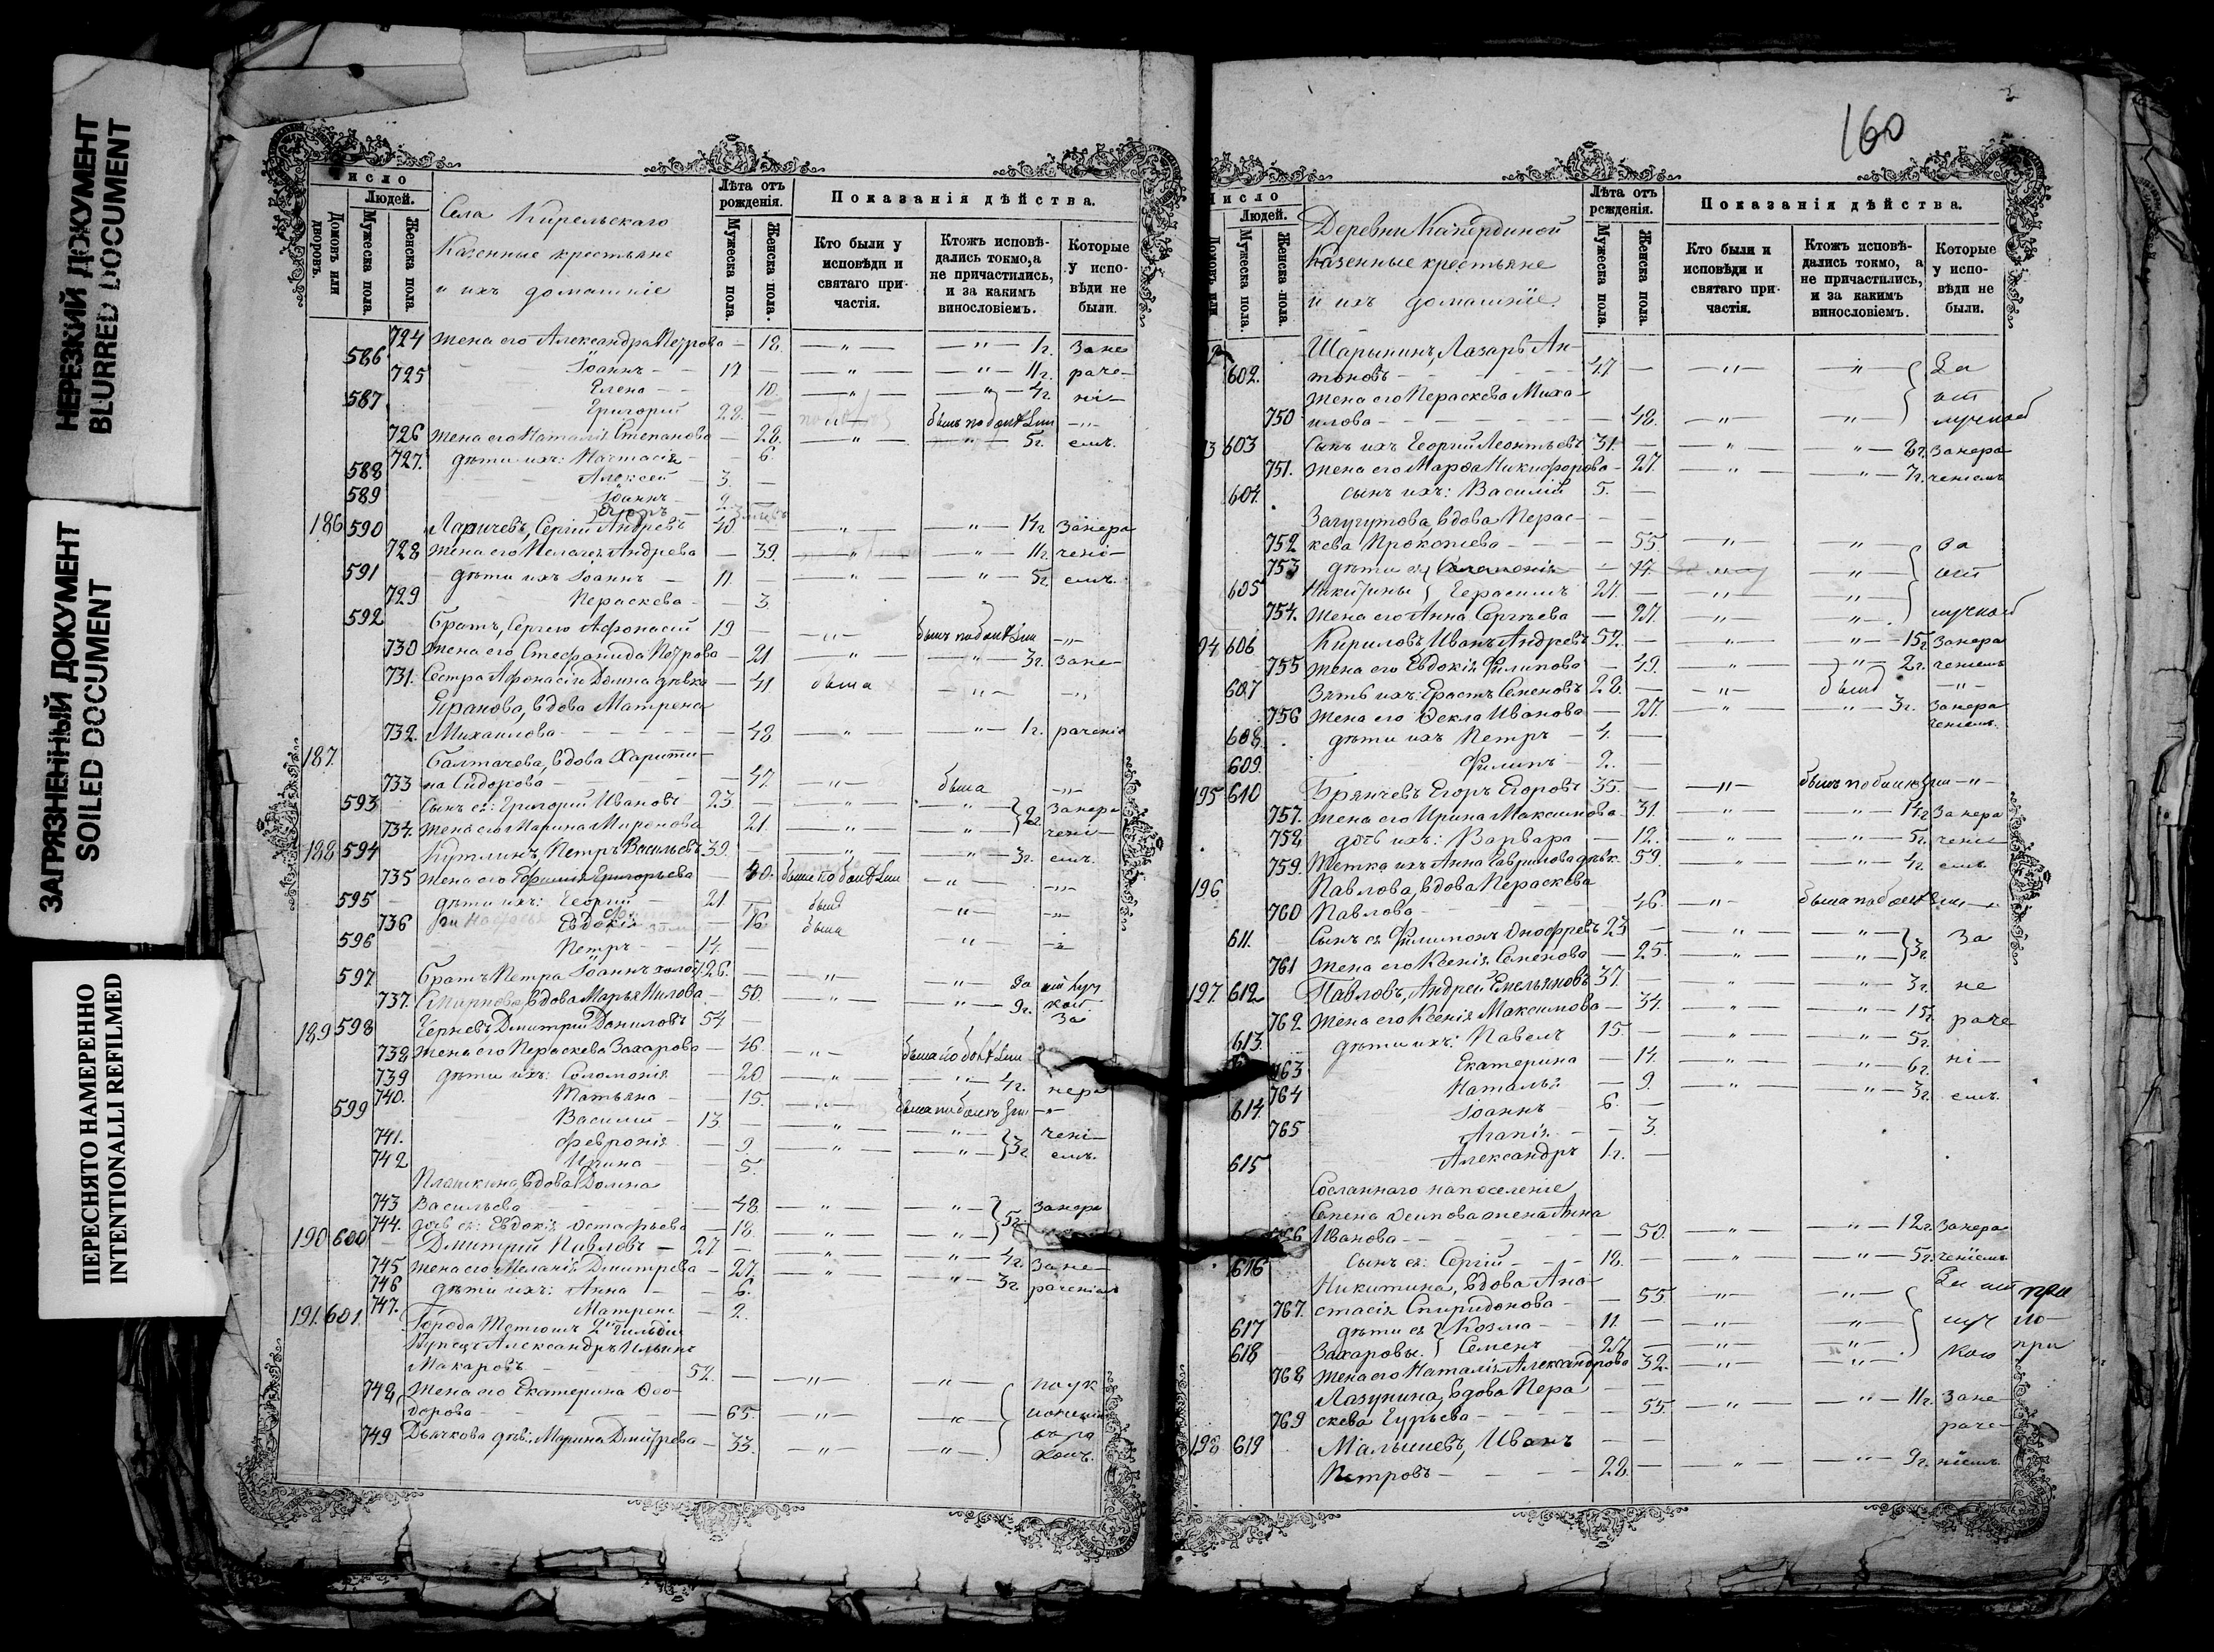 НЕРЕЗКИЙ ДОКУМЕНТ
BLURRED DOCUMENT
ЗАГРЯЗНЕННЫЙ ДОКУМЕНТ
SOILED DOCUMENT
ПЕРЕСНЯТО НАМЕРЕННО
INTENTIONALLI REFILMED
число
Людей.
Домовъ или дворовъ.
Мужеска пола.
Женска пола.
Села Кирельскаго
Казенные крестьяне
и ихъ домашніе
Лѣта отъ рожденія.
Мужеска пола.
Женска пола.
Показанія дѣйства.
Кто были у исповѣди и святаго причастія.
Ктожъ исповѣдались токмо, а не причастились, и за какимъ винословіемъ.
Которые у исповѣди не были.
724 Жена его Александра Петрова — 18. — „ — — „ — 1г. Зане
586 Іоаннъ — 17 — — „ — — „ — 11г. раче-
725 Елена — 10. — „ — — „ — 4г. ні-
587 Григорій 28. —
726 Жена его Наталія Степанова — 28. — „ — 5г. емъ.
727. дѣти ихъ: Настасія — 6.
588 Алексей — 3. —
589 Іоаннъ — 2. —
186 590 Ларичевъ, Сергій Андреевъ 40. — „ — — „ — 14г. Занера
728 Жена его Пелагея Андреева — 39. — „ — 11г. чені-
591 дѣти ихъ Іоаннъ — 11. — — „ — — „ — 5г. емъ.
729 Параскева — 3.
592 Братъ, Сергею Афонасій 19 — — „ — — „ —
730 Жена его Стефанида Петрова — 21 — „ — — „ — 3г. Зане-
731. Сестра Афонасія Домна дѣвка — 41 была — „ — — „
вдова Матрена
732. Михайлова — 48 — „ — — „ — 1г. раченіе
187. Балтачева, вдова Харити-
733 на Сидорова — 47. — „ — была — „ —
593 Сынъ ея: Григорій Ивановъ 23. — — „ — — „ — 2г. Занера
734. Жена его Марина Миронова 21. — „ — — „ — чені-
188 594 Кутлинъ, Петръ Васильевъ 39. — — „ — — „ — 3г. емъ.
735 Жена его Ефимія Григорьева — 40. — „ — — „ —
595 дѣти ихъ: Георгій — 21. — былъ — „ — — „ —
736 Евдокія 16. была
596 Петръ — 14 — — „ —
597 Братъ Петра Іоаннъ холост. 26. — — „ — — „ —
737. вдова Марья Нилова — 50. — „ — — „ — 9г.
189 598 Черневъ, Дмитрій Даниловъ 54 — За
738. Жена его Параскева Захарова — 46. — „ —
739 дѣти ихъ: Соломонія — 20. — „ — — „ — 4г. нера
740. Татьяна — 15. — „ — — „ —
599 Василій — 13. — — „ — — „ — чені-
741. Февронія — 9. — „ — — „ — 3г. емъ.
742 Ирина — 5.
Плашкина, вдова Домна
743 Васильева — 48. — „ — — „ — 5г. Занера
744. дочь ея: Евдокія Остафьева — 18. — „ — — „ —
190. 600 Дмитрій Павловъ — 27 — — „ — — „ — 4г.
745 Жена его Меланія Дмитрева — 27. — „ — — „ — 3г. Зане-
746 дѣти ихъ: Анна — 6. раченіемъ
747. Матрена — 2.
191. 601. Города Тетюшъ 2й гильдіи
Купецъ Александръ Ильинъ
Макаровъ — 52. — — „ — — „ —
748. Жена его Екатерина Фео-
дорова — 65. — „ — — „ —
749 Дьячкова дѣв: Марина Дмитрева — 33. — „ — — „ —
160
число
Людей.
Домовъ или
Мужеска пола.
Женска пола.
Деревни Кангердиной
Казенные крестьяне
и ихъ домашніе
Лѣта отъ рожденія.
Мужеска пола.
Женска пола.
Показанія дѣйства.
Кто были и исповѣди и святаго причастія.
Ктожъ исповѣдались токмо, а не причастились, и за какимъ винословіемъ.
Которые у исповѣди не были.
Шарынинъ, Лазарь Ан-
602. тоновъ — 47. — — „ — — „ — За
Жена его Параскева Миха- от
750 илова — 48. — „ — — „ — лучкой
603 Сынъ ихъ Георгій Леонтьевъ 31. — — „ — — „ — 8г. Занера
751. Жена его Марфа Никифорова — 27. — „ — — „ — 7г. ченіемъ
604. сынъ ихъ: Василій 5. —
вдова Перас-
752 кева Прокопіева — 55. — „ — — „ — за
753 дѣти ея 17. — „ — — „ — от
605 Никитины Герасимъ 27. — — „ — — „ —
754. Жена его Анна Сергѣева — 27. — „ — — „ — лучкой
606 Кириловъ, Иванъ Андреевъ 52. — — „ — — „ — 15г. Занера
755 Жена его Евдокія Филипова — 49. — „ — — „ — 2г. ченіемъ
607 Зять ихъ: Ерастъ Семеновъ 28. — — „ — былъ — „ —
756 Жена его Фекла Иванова — 27. — „ — — „ — 3г. Занера
ченіемъ
608. дѣти ихъ Петръ — 4. —
609. Филипъ — 2. —
195 610 Брянчевъ Егоръ Егоровъ 35. — — „ — — „ —
757. Жена его Ирина Максимова — 31. — „ — — „ — 14г. Занера
758. дочь ихъ: Варвара — 12. — „ — — „ — 5г. чені
759. Тетка ихъ Анна Гаврилова дѣвк. 59. — „ — — „ — 4г. емъ.
196 Павлова, вдова Параскева
760 Павлова — 46. — „ —
611. Сынъ ея Филимонъ Онофревъ 23 — — „ — — „ — 3г. За
761 Жена его Ксенія Семенова — 25. — „ — — „ —
197. 612 Павловъ, Андрей Емельяновъ 37. — — „ — — „ — 3г. не
762 Жена его Ксенія Максимова — 34. — „ — — „ — 15г. раче
613. дѣти ихъ: Павелъ 15. — — „ — — „ — 5г.
763 Екатерина — 14. — „ — — „ — 6г. ні-
764 Наталья — 9. — „ — — „ — 3г. емъ.
614 Іоаннъ — 6. —
765 Агапія — 3.
615 Александръ 1г. —
Сосланнаго на поселеніе
Семена Осипова жена Анна
766 Иванова — 50. — „ — — „ — 12г. Занера
616 сынъ ея: Сергій — 18. — — „ — — „ — 5г. ченіемъ
Никитина, вдова Ана-
767. стасія Спиридонова — 55. — „ — — „ —
617 дѣти ея Козма — 11. — — „ — — „ —
618 Захаровы. Семенъ 27. — — „ — — „ —
768 Жена его Наталія Александрова 32. — „ — — „ —
Лазунина, вдова Пера
769 скева Гурьева — 55. — „ — — „ — 11г. Зане
раче-
198 619 Малышевъ, Иванъ
Петровъ — 28. — — „ — — „ — 9г. ніемъ